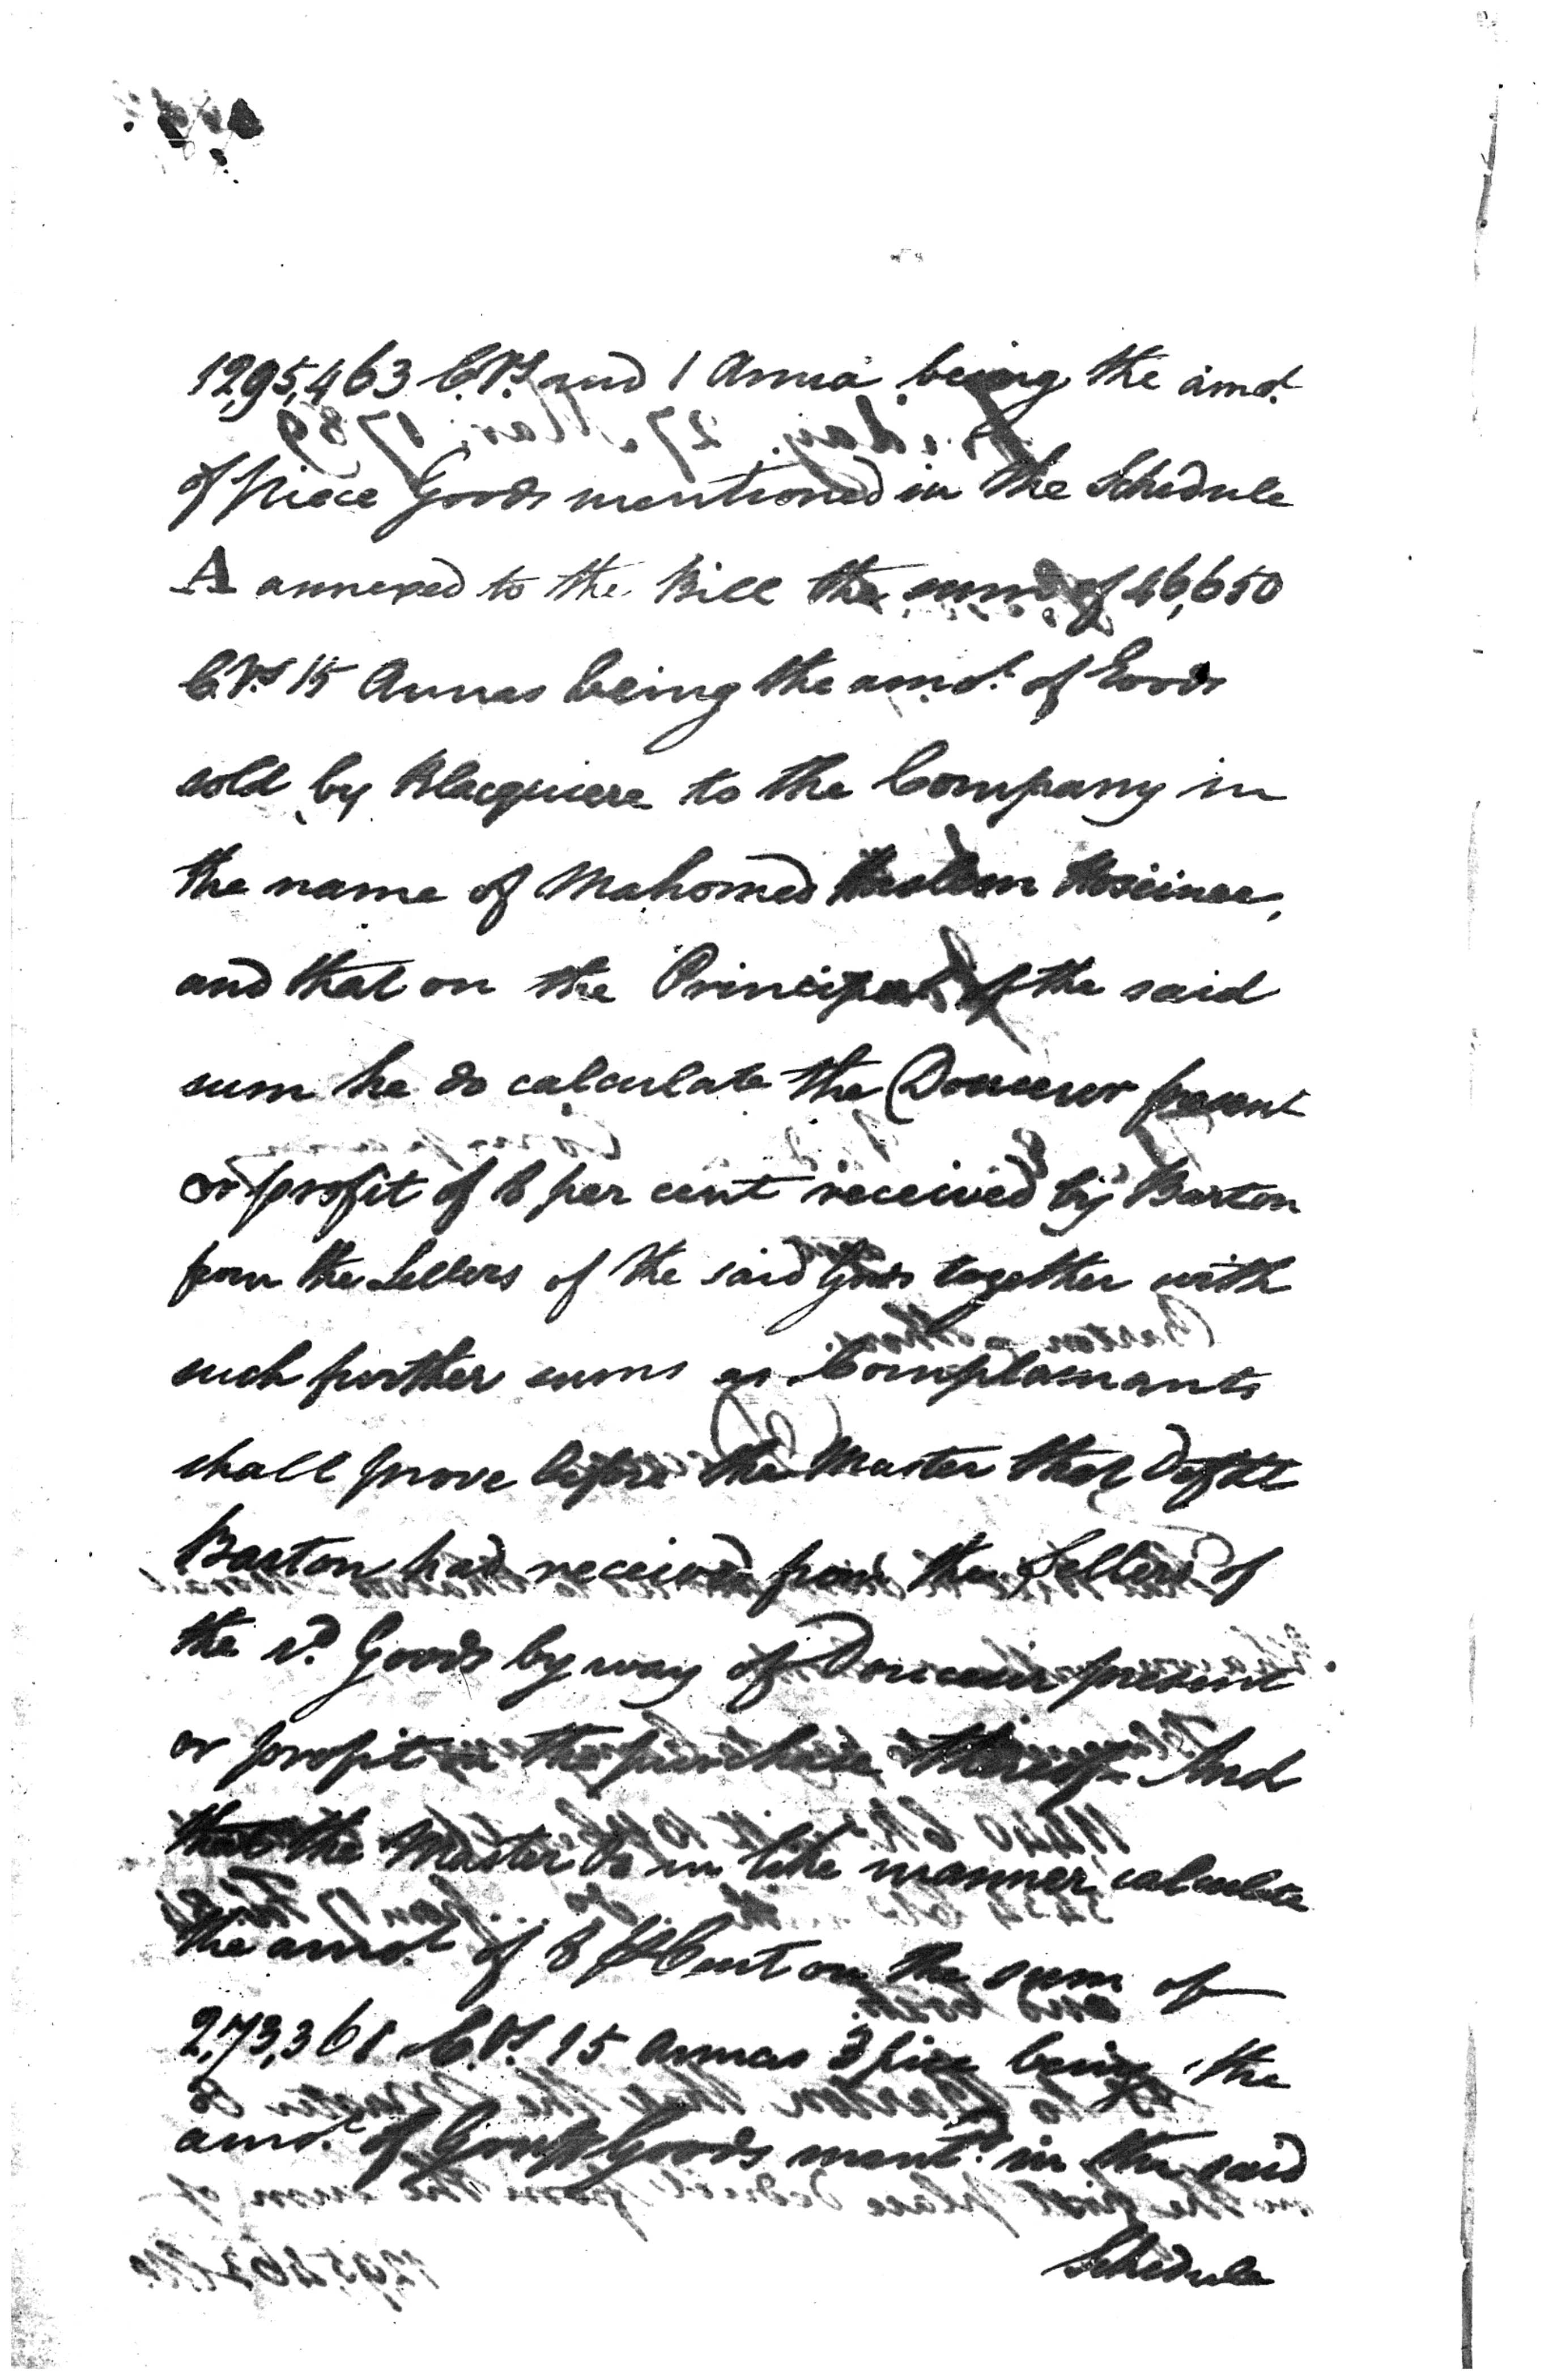 12,95,463 C.Rs. and 1 Anna being the amot.
of piece Goods mentioned in the Schedule
A annexed to the Bill the sum of 46,650
C Rs 15 Annas being the amot. of Goods
sold by Blacquiere to the Company in
the name of Mahomed
and that on the Principal of the said
sum he do calculate the Douceur present
or profit of 8 per cent received by Barton
from the Sellers of the said Goods together with
such further sums as Complainants
shall prove before the Master that Deft
Barton had received from the Sellers of
the sd. Goods by way of Douceur present
or profit in the purchase thereof And
that the Master do in like manner calculate
the amot of 8 P Cent on the sum of
2,73,361 C.Rs. 15 Annas 3 pice being the
amot. of Goods mentd. in the said
Schedule